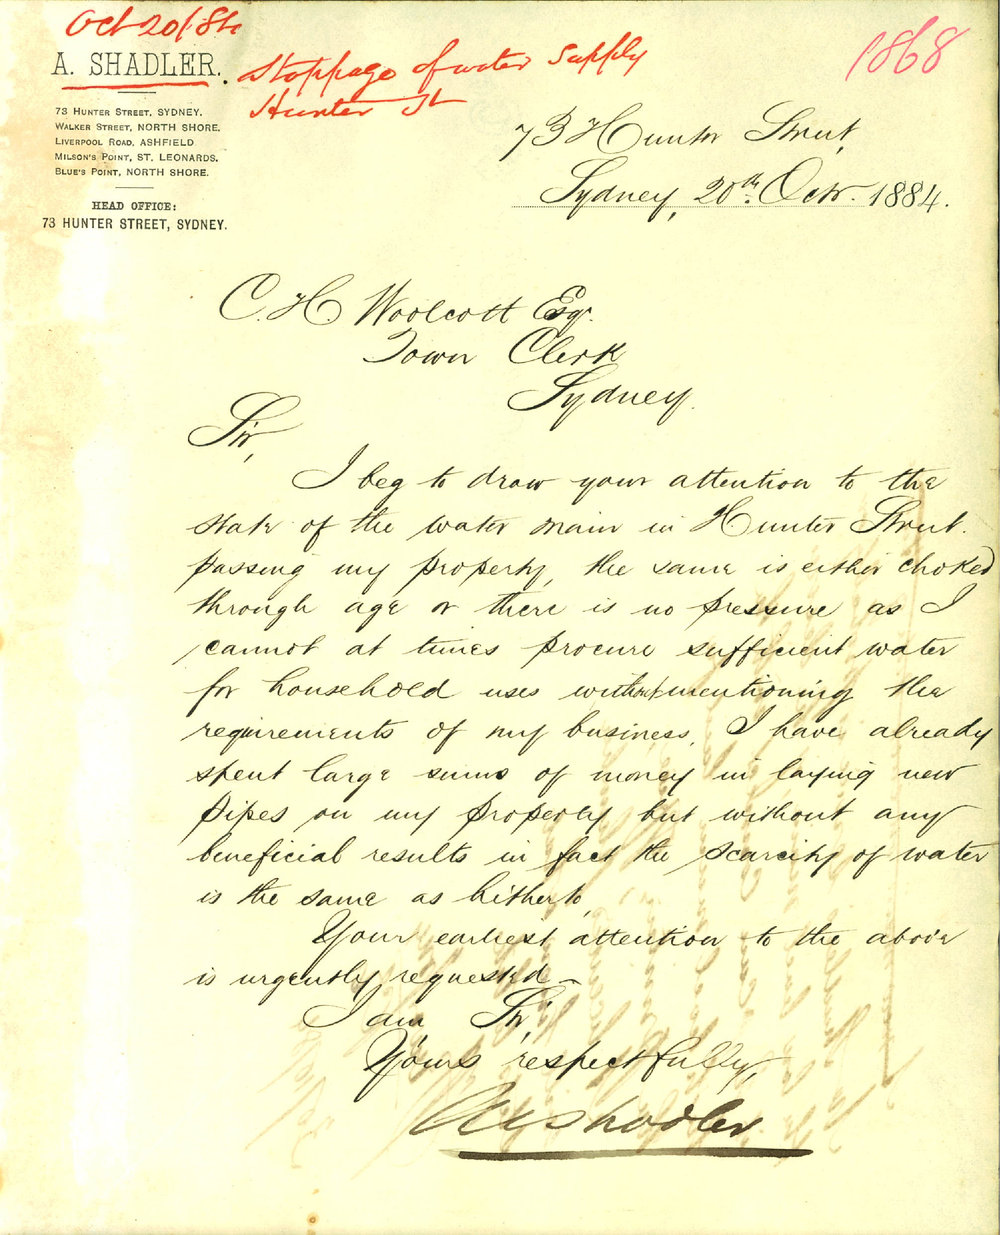 Oct 20/84
A. SHADLER.
Stoppage of water Supply
Hunter St
1868
73 HUNTER STREET, SYDNEY.
WALKER STREET, NORTH SHORE.
LIVERPOOL ROAD, ASHFIELD
MILSON'S POINT, ST. LEONARDS.
BLUE'S POINT, NORTH SHORE.
HEAD OFFICE:
73 HUNTER STREET, SYDNEY.
73 Hunter Street,
Sydney, 20th Octr. 1884.
C. H. Woolcott Esq.
Town Clerk
Sydney.
Sir,
I beg to draw your attention to the
state of the water main in Hunter Street.
passing my property, the same is either choked
through age or there is no pressure as I
cannot at times procure sufficient water
for household uses without mentioning the
requirements of my business. I have already
spent large sums of money in laying new
pipes on my property but without any
beneficial results in fact the scarcity of water
is the same as hitherto,
Your earliest attention to the above
is urgently requested
I am, Sir,
Yours respectfully,
Shadler